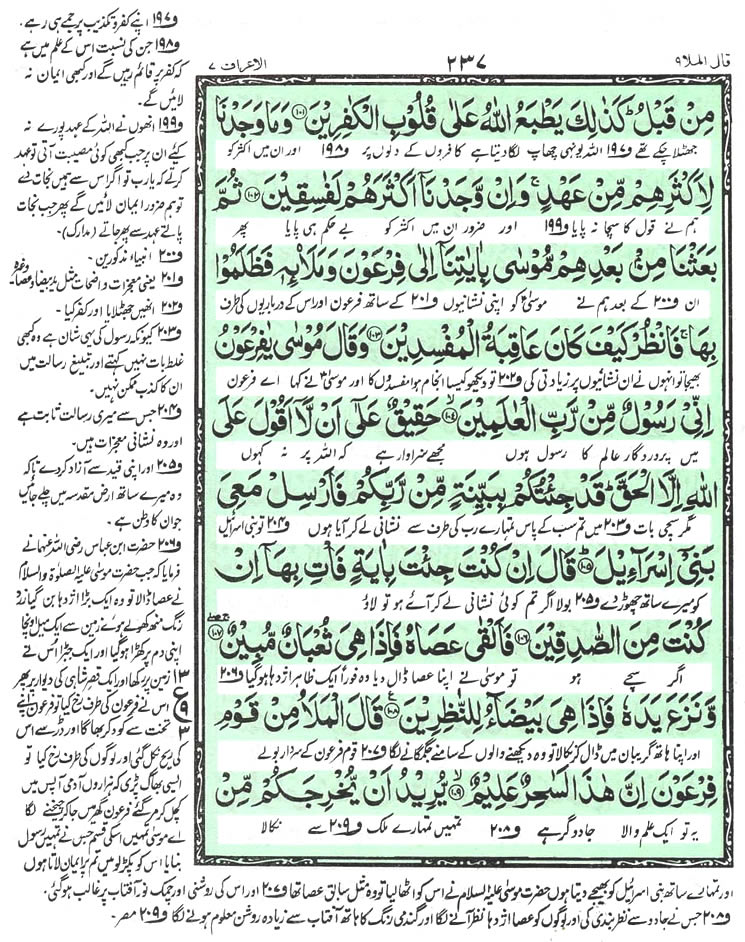 قال الملا ٩
٢٣٧
الاعراف ٧
مِنْ قَبْلُ ؕ كَذٰلِكَ يَطْبَعُ اللّٰهُ عَلٰى قُلُوْبِ الْكٰفِرِيْنَ ﴿۱۰۱﴾ وَمَا وَجَدْنَا
جھٹلا چکے تھے ف١٩٧ اللہ یونہی چھاپ لگا دیتا ہے کافروں کے دلوں پر ف١٩٨ اور ان میں اکثر کو
لِاَكْثَرِهِمْ مِّنْ عَهْدٍ ۚ وَاِنْ وَّجَدْنَاۤ اَكْثَرَهُمْ لَفٰسِقِيْنَ ﴿۱۰۲﴾ ثُمَّ
ہم نے قول کا سچا نہ پایا ف١٩٩ اور ضرور ان میں اکثر کو بے حکم ہی پایا پھر
بَعَثْنَا مِنْۢ بَعْدِهِمْ مُّوْسٰى بِاٰيٰتِنَاۤ اِلٰى فِرْعَوْنَ وَمَلَا۟ىِٕهٖ فَظَلَمُوْا
ان ف٢٠٠ کے بعد ہم نے موسیٰ کو اپنی نشانیوں ف٢٠١ کے ساتھ فرعون اور اس کے درباریوں کی طرف
بِهَا ۚ فَانْظُرْ كَيْفَ كَانَ عَاقِبَةُ الْمُفْسِدِيْنَ ﴿۱۰۳﴾ وَقَالَ مُوْسٰى يٰفِرْعَوْنُ
بھیجا تو انہوں نے ان نشانیوں پر زیادتی کی ف٢٠٢ تو دیکھو کیسا انجام ہوا مفسدوں کا اور موسیٰ نے کہا اے فرعون
اِنِّيْ رَسُوْلٌ مِّنْ رَّبِّ الْعٰلَمِيْنَ ﴿۱۰۴﴾ حَقِيْقٌ عَلٰۤى اَنْ لَّاۤ اَقُوْلَ عَلَى
میں پروردگار عالم کا رسول ہوں مجھے سزاوار ہے کہ اللہ پر نہ کہوں
اللّٰهِ اِلَّا الْحَقَّ ؕ قَدْ جِئْتُكُمْ بِبَيِّنَةٍ مِّنْ رَّبِّكُمْ فَاَرْسِلْ مَعِيَ
مگر سچی بات ف٢٠٣ میں تم سب کے پاس تمہارے رب کی طرف سے نشانی لے کر آیا ہوں ف٢٠٤ تو بنی اسرائیل
بَنِيْۤ اِسْرَآءِيْلَ ﴿۱۰۵﴾ قَالَ اِنْ كُنْتَ جِئْتَ بِاٰيَةٍ فَاْتِ بِهَاۤ اِنْ
کو میرے ساتھ چھوڑ دے ف٢٠٥ بولا اگر تم کوئی نشانی لے کر آئے ہو تو لاؤ
كُنْتَ مِنَ الصّٰدِقِيْنَ ﴿۱۰۶﴾ فَاَلْقٰى عَصَاهُ فَاِذَا هِيَ ثُعْبَانٌ مُّبِيْنٌ ﴿۱۰۷﴾
اگر سچے ہو تو موسیٰ نے اپنا عصا ڈال دیا وہ فوراً ایک ظاہر اژدہا ہوگیا ف٢٠٦
وَّنَزَعَ يَدَهٗ فَاِذَا هِيَ بَيْضَآءُ لِلنّٰظِرِيْنَ ﴿۱۰۸﴾ قَالَ الْمَلَاُ مِنْ قَوْمِ
اور اپنا ہاتھ گریبان میں ڈال کر نکالا تو وہ دیکھنے والوں کے سامنے جگمگانے لگا ف٢٠٧ قوم فرعون کے سردار بولے
فِرْعَوْنَ اِنَّ هٰذَا لَسٰحِرٌ عَلِيْمٌ ﴿۱۰۹﴾ يُّرِيْدُ اَنْ يُّخْرِجَكُمْ مِّنْ
یہ تو ایک علم والا جادوگر ہے ف٢٠٨ تمہیں تمہارے ملک ف٢٠٩ سے نکالا
ف١٩٧ اپنے کفر و تکذیب پر جمے ہی رہے۔
ف١٩٨ جن کی نسبت اس کے علم میں ہے
کہ کفر پر قائم رہیں گے اور کبھی ایمان نہ
لائیں گے۔
ف١٩٩ انھوں نے اللہ کے عہد پورے نہ
کیے ان پر جب کبھی کوئی مصیبت آتی تو عہد
کرتے کہ یارب تو اگر اس سے ہمیں نجات دے
تو ہم ضرور ایمان لائیں گے پھر جب نجات
پاتے عہد سے پھر جاتے (مدارک)۔
ف٢٠٠ انبیاء مذکورین۔
ف٢٠١ یعنی معجزات واضحات مثل ید بیضا و عصا وغیرہ
ف٢٠٢ انھیں جھٹلایا اور کفر کیا۔
ف٢٠٣ کیونکہ رسول کی یہی شان ہے وہ کبھی
غلط بات نہیں کہتے اور تبلیغ رسالت میں
ان کا کذب ممکن نہیں۔
ف٢٠٤ جس سے میری رسالت ثابت ہے
اور وہ نشانی معجزات ہیں۔
ف٢٠٥ اور اپنی قید سے آزاد کردے تاکہ
وہ میرے ساتھ ارض مقدسہ میں چلے جائیں
جو ان کا وطن ہے۔
ف٢٠٦ حضرت ابن عباس رضی اللہ عنہما نے
فرمایا کہ جب حضرت موسیٰ علیہ الصلوٰۃ والسلام
نے عصا ڈالا تو وہ ایک بڑا اژدہا بن گیا زرد
رنگ منھ کھولے ہوئے زمین سے ایک میل اونچا
اپنی دم پر کھڑا ہوگیا اور ایک جبڑا اس نے
زمین پر رکھا اور ایک قصر شاہی کی دیوار پر پھر
اس نے فرعون کی طرف رخ کیا تو فرعون اپنے
تخت سے کود کر بھاگا اور ڈر سے اس
کی ریح نکل گئی اور لوگوں کی طرف رخ کیا تو
ایسی بھاگ پڑی کہ ہزاروں آدمی آپس میں
کچل کر مر گئے فرعون گھر میں جاکر چیخنے لگا
اے موسیٰ تمہیں اسکی قسم جس نے تمہیں رسول
بنایا اس کو پکڑ لو میں تم پر ایمان لاتا ہوں
۱۳
ع
۹
۳
اور تمہارے ساتھ بنی اسرائیل کو بھیجے دیتا ہوں حضرت موسیٰ علیہ السلام نے اس کو اٹھا لیا تو وہ مثل سابق عصا تھا ف٢٠٧ اور اس کی روشنی اور چمک نور آفتاب پر غالب ہوگئی۔
ف٢٠٨ جس نے جادو سے نظر بندی کی اور لوگوں کو عصا اژدہا نظر آنے لگا اور گندمی رنگ کا ہاتھ آفتاب سے زیادہ روشن معلوم ہونے لگا ف٢٠٩ مصر۔